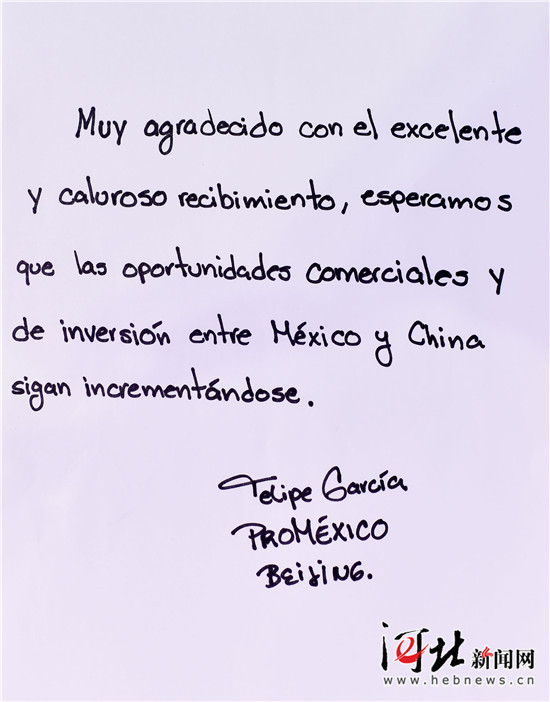 Muy agradecido con el excelente
y caluroso recibimiento, esperamos
que las oportunidades comerciales y
de inversión entre México y China
sigan incrementándose.
Felipe García
PROMÉXICO
BEIJING.
河北新闻网
www.hebnews.cn